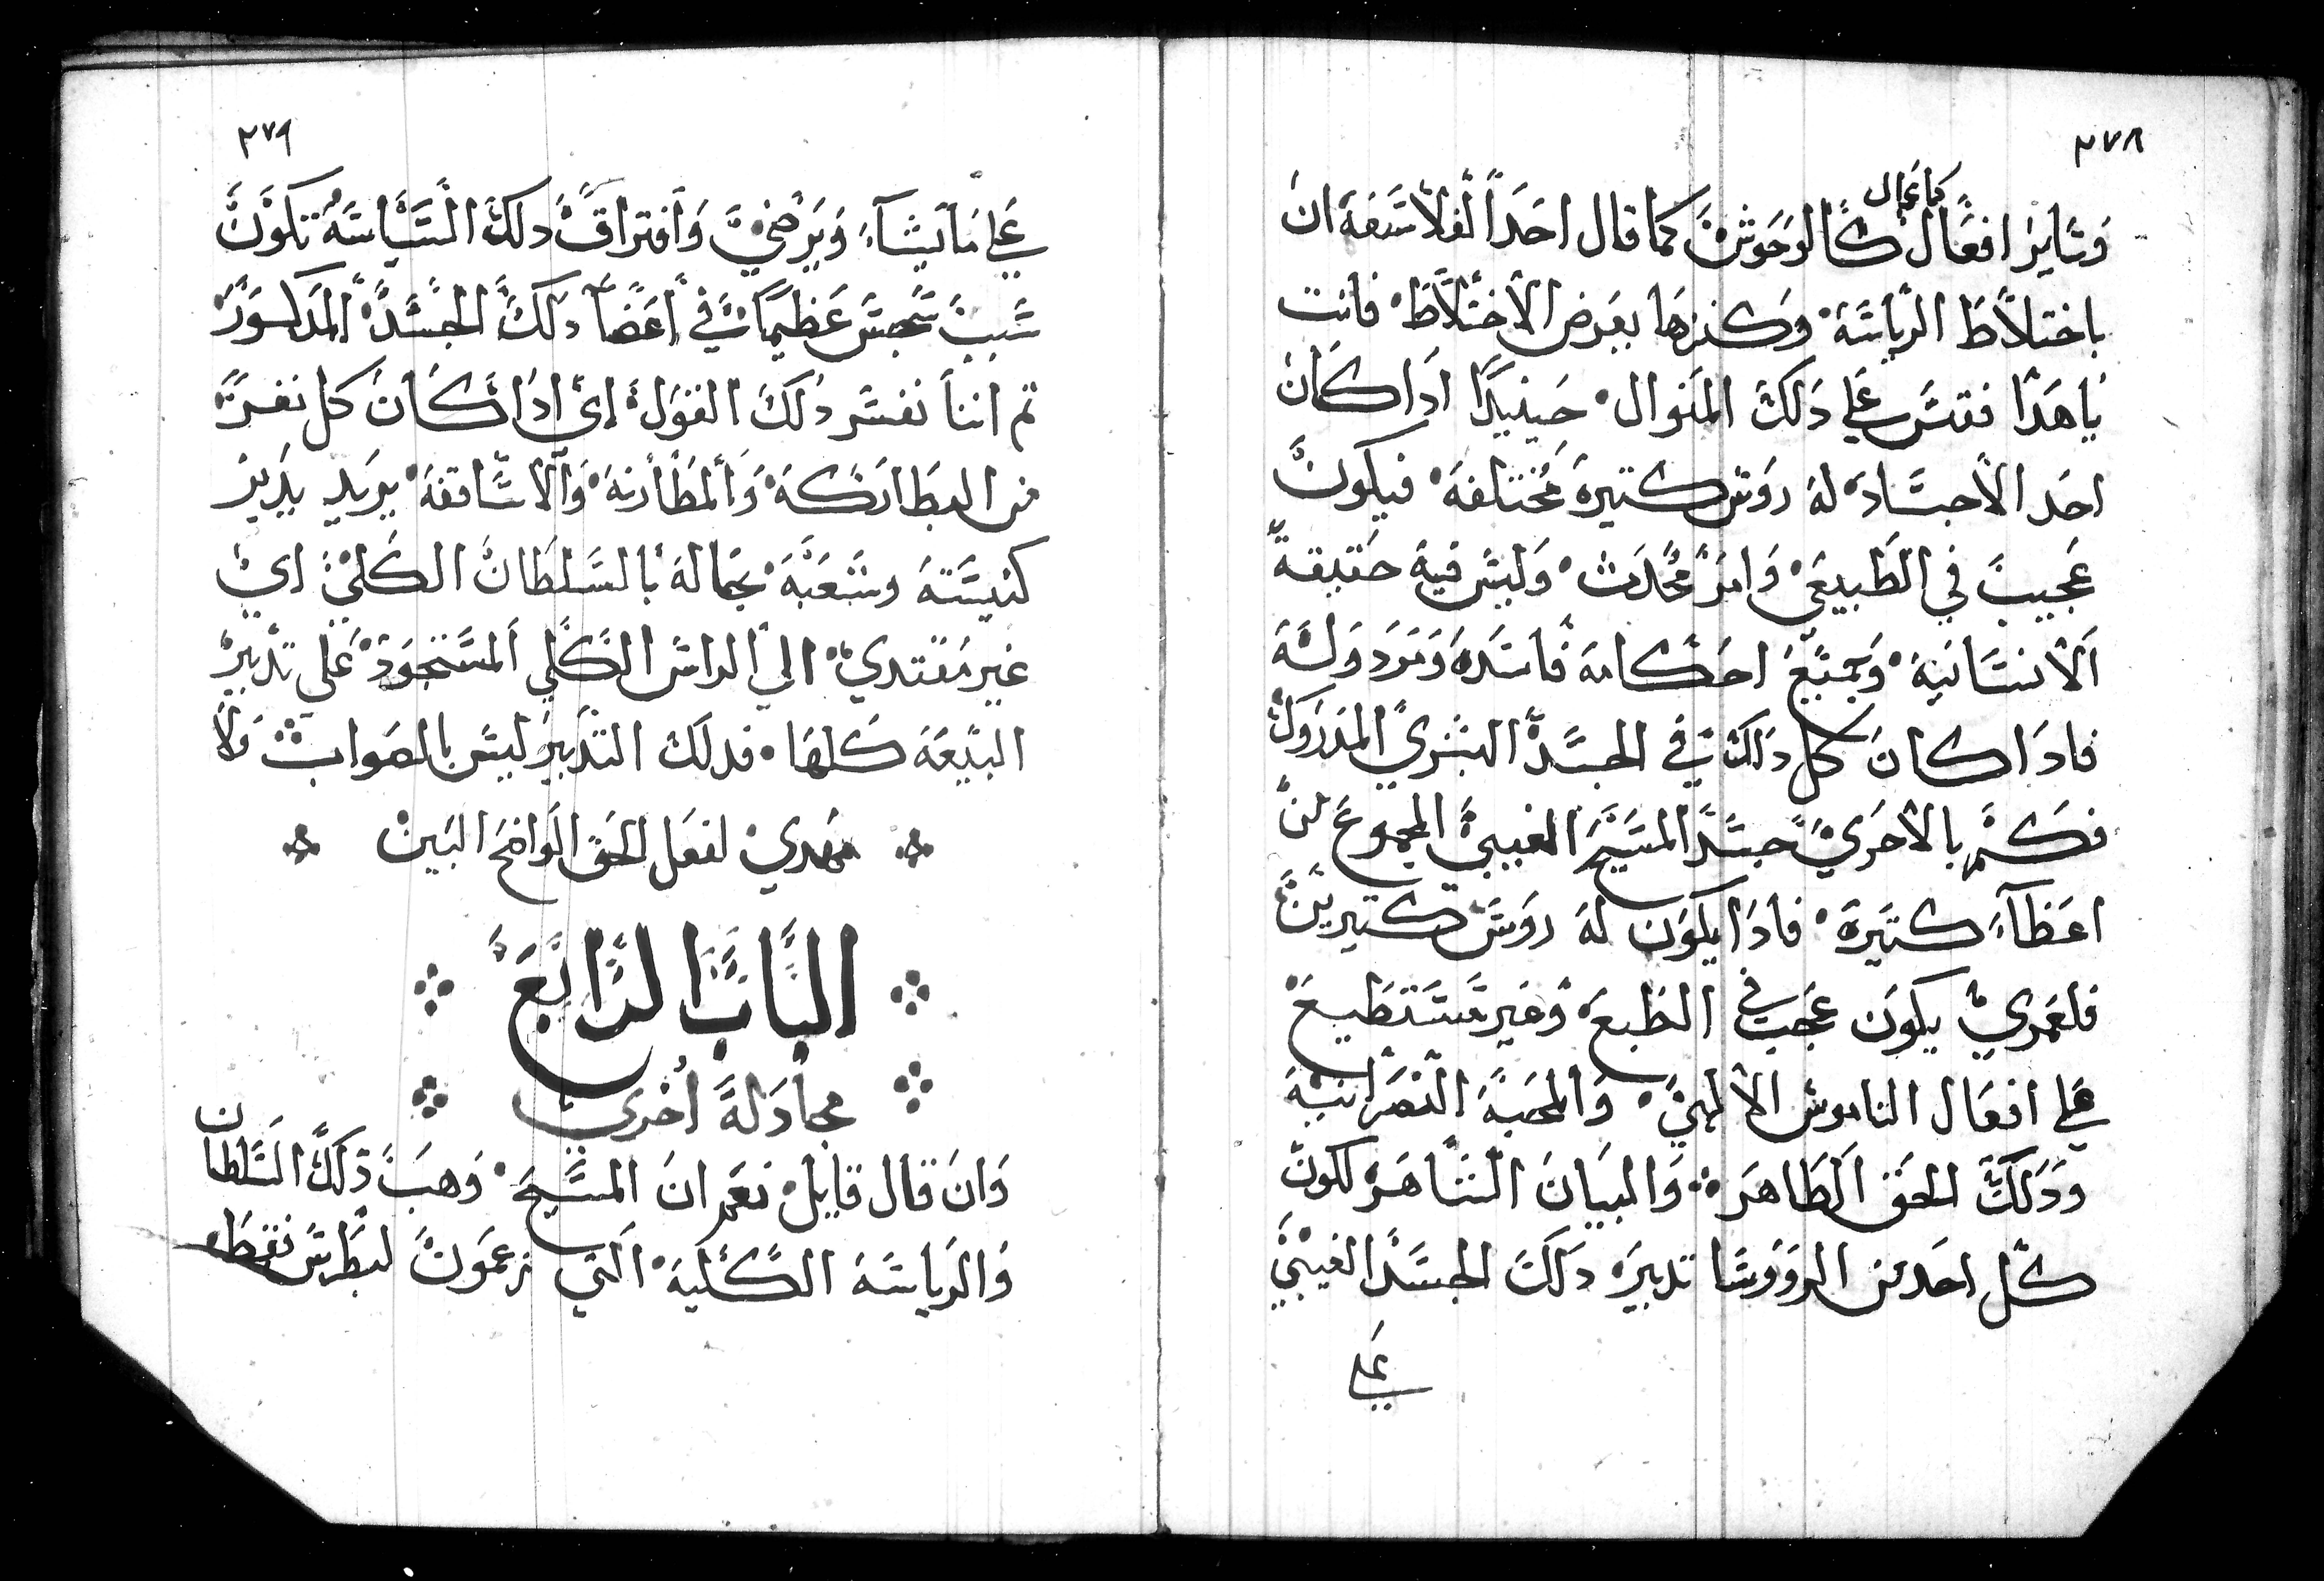 ٢٧٨
كما عمال
وساير افعال كالوحوش كما قال احد الفلاسفة ان
باختلاط الرياسة وكنزها يعرض الاختلاط فانت
يا هدا فتس علي دلك المنوال حينيدا ادا كان
احد الاجساد له روس كتيرة مختلفة فيكون
عجيب في الطبيعي وامر محدث وليس فيه حقيقة
الانسانية وجميع احكامه فاسده ومردوله
فادا كان كل دلك في الجسد البشري المدروك
فكم بالاحري جسد المسيح الغيبي المجموع من
اعظاء كتيرة فادا يكون له روس كتيرين
فلعمري يكون عجب في الطبع وغير مستطيع
علي افعال الناموس الالهي والمحبة النصرانية
ودلك الحق الظاهر والبيان الشاهر لكون
كل احد من الرووسا تدبيره دلك الجسد الغيبي
علي
٢٧٩
علي ما يشاء ويرضي وافتراق دلك السياسة تكون
سبب سجس عظيم في اعضا دلك الجسد المدكور
تم اننا نفسر دلك القول اي ادا كان كل نفر
من البطاركة والمطارنة والاساقفة يريد يدبر
كنيسته وشعبه بحماله بالسلطان الكلي اي
غير مقتدي الي الراس الكلي المستحود علي تدبير
البيعة كلها فدلك التدبير ليس بالصواب ولا
مهدي لفعل الحق الواضح البين
الباب الرابع
مجادلة اخري
وان قال قايل نعم ان المسيح وهب دلك السلطان
والرياسة الكلية التي تزعمون لبطرس فقط